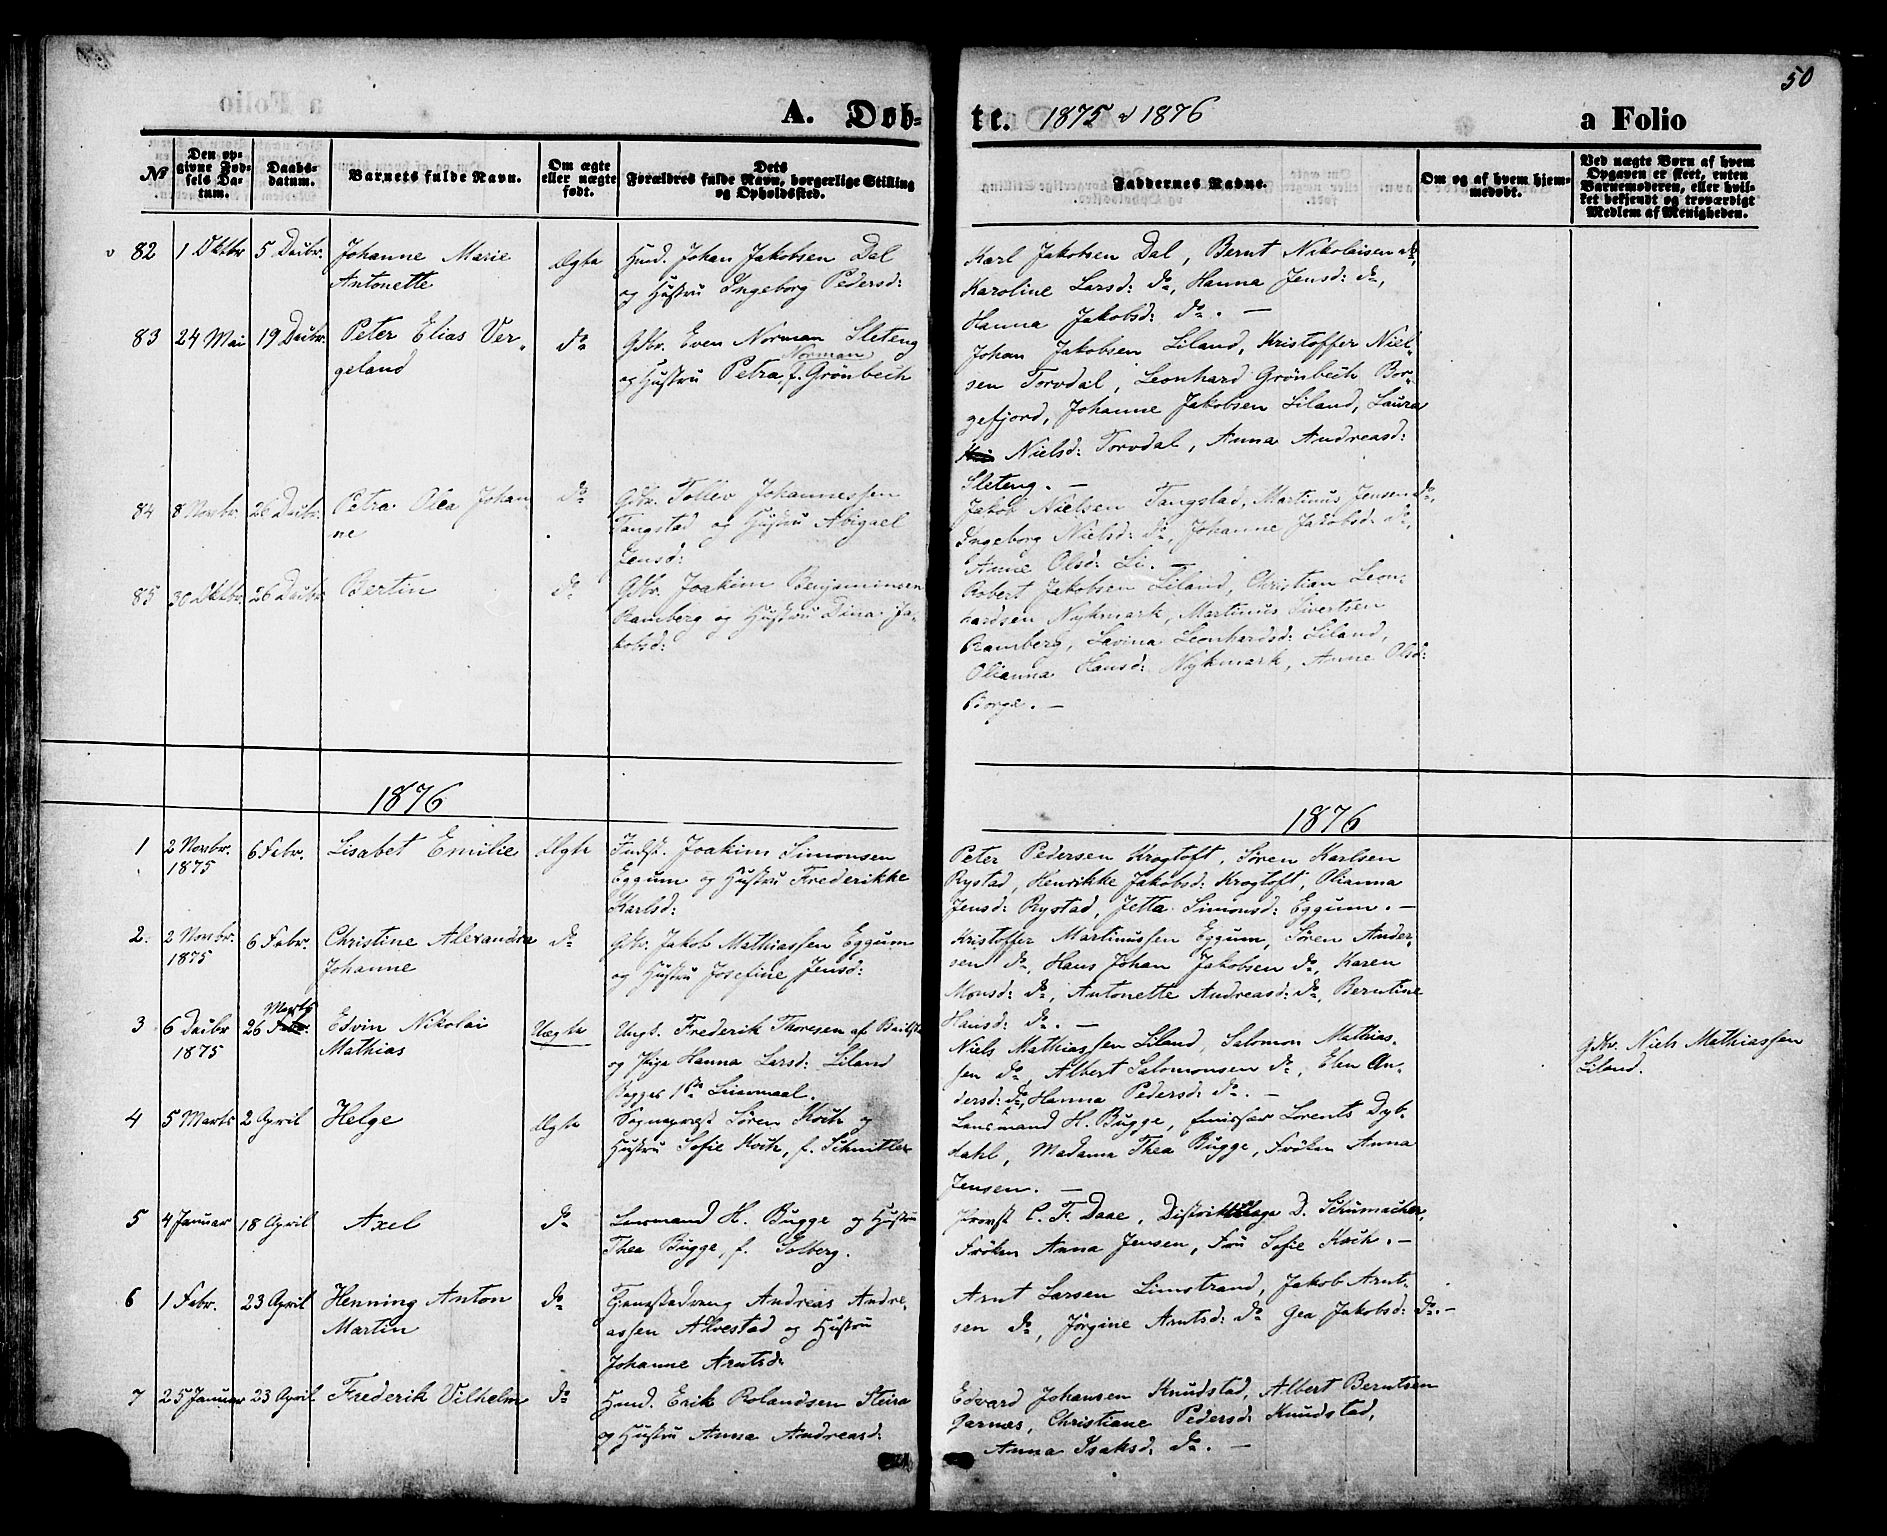 50
A. Døb-
te. 1875 & 1876
a Folio
№
Den op-
givne Fød-
sels Da-
tum.
Daabs-
datum.
Barnets fulde Navn.
Om ægte
eller uægte
født.
Dets
Forældres fulde Navn, borgerlige Stilling
og Opholdssted.
Faddernes Navne.
Om og af hvem hjem-
medøbt.
Ved uægte Børn af hvem
Opgaven er skeet, enten
Barnemoderen, eller hvil-
ket bekjendt og troværdigt
Medlem af Menigheden.
82 1 Oktbr 5 Decbr. Johanne Marie
Antonette
Ægte
Huusmd. Johan Jakobsen Dal
og Hustru Ingeborg Pedersd:
Karl Jakobsen Dal, Bernt Nikolaisen do,
Karoline Larsd: do, Hanna Jensd: do,
Hanna Jakobsd: do. —
83 24 Mai 19 Decbr. Peter Elias Ver-
geland
do
Gbr. Even Norman Sleteng
og Hustru Petra Norman f. Grönbech
Johan Jakobsen Liland, Kristoffer Niel-
sen Torvdal, Leonhard Grönbech Bor-
gefjord, Johanne Jakobsen Liland, Laura
Nielsd: Torvdal, Anna Andreasd:
Sleteng. —
84 8 Novbr. 26 Decbr. Petra Olea Johan-
ne
do
Gbr. Tollev Johannessen
Tangstad og Hustru Abigael
Jensd:
Jakob Nielsen Tangstad, Martinus Jensen do,
Ingeborg Nielsd: do, Johanne Jakobsd: do,
Anne Olsd: Li. —
85 30 Oktbr. 26 Decbr. Bertin
do
Gbr. Joakim Benjaminsen
Ramberg og Hustru Dina Ja-
kobsd:
Robert Jakobsen Liland, Christian Leon-
hardsen Nykmark, Martinus Sivertsen
Ramberg, Lavina Leonhardsd: Liland,
Olianna Hansd: Nykmark, Anne Olsd:
Borge. —
1876
1876
1 2 Novbr.
1875
6 Febr. Lisabet Emilie
Ægte
Indst. Joakim Simonsen
Eggum og Hustru Frederikke
Karlsd:
Peter Pedersen Krogtoft, Sören Karlsen
Rystad, Henrikke Jakobsd: Krogtoft, Olianna
Jensd: Rystad, Jetta Simonsd: Eggum. —
2. 2 Novbr.
1875
6 Febr. Christine Alexandra
Johanne
do
Gbr. Jakob Mathiassen Eggum
og Hustru Josefine Jensd:
Kristoffer Martinussen Eggum, Sören Ander-
sen do, Hans Johan Jakobsen do, Karen
Monsd: do, Antonette Andreasd: do, Berntine
Hansd: do. —
3 6 Decbr
1875
26 Marts Edvin Nikolai
Mathias
Uægte
Ungk. Frederik Thoresen af
og Pige Hanna Larsd: Liland
Begges 1ste Leiermaal.
Niels Mathiassen Liland, Salomon Mathias-
sen do, Albert Salomonsen do, Elen An-
dersd: do, Hanna Pedersd: do. —
Gbr. Niels Mathiassen
Liland.
4 5 Marts 2 April Helge
Ægte
Sognepræst Sören Koch og
Hustru Sofie Koch, f. Schnitler
Lensmand H. Bugge, Emissær Lorents Dyb-
dahl, Madame Thea Bugge, Fröken Anna
Jensen. —
5 4 Januar 18 April Axel
do
Lensmand H. Bugge og Hustru
Thea Bugge, f. Solberg.
Provst C. F. Daae, Distriktslæge D. Schumacher,
Fröken Anna Jensen, Fru Sofie Koch. —
6 1 Febr. 23 April Henning Anton
Martin
do
Andreas Andre-
assen Alvestad og Hustru
Johanne Arntsd:
Arnt Larsen Limstrand, Jakob Arnt-
sen do, Jörgine Arntsd: do Gea Jakobsd: do. —
7 25 Januar 23 April Frederik Vilhelm
do
Huusmd. Erik Rolandsen Steira
og Hustru Anna Andreasd:
Edvard Johansen Knudstad, Albert Berntsen
Garnæs, Christiane Pedersd: Knudstad,
Anna Isaksd: do. —